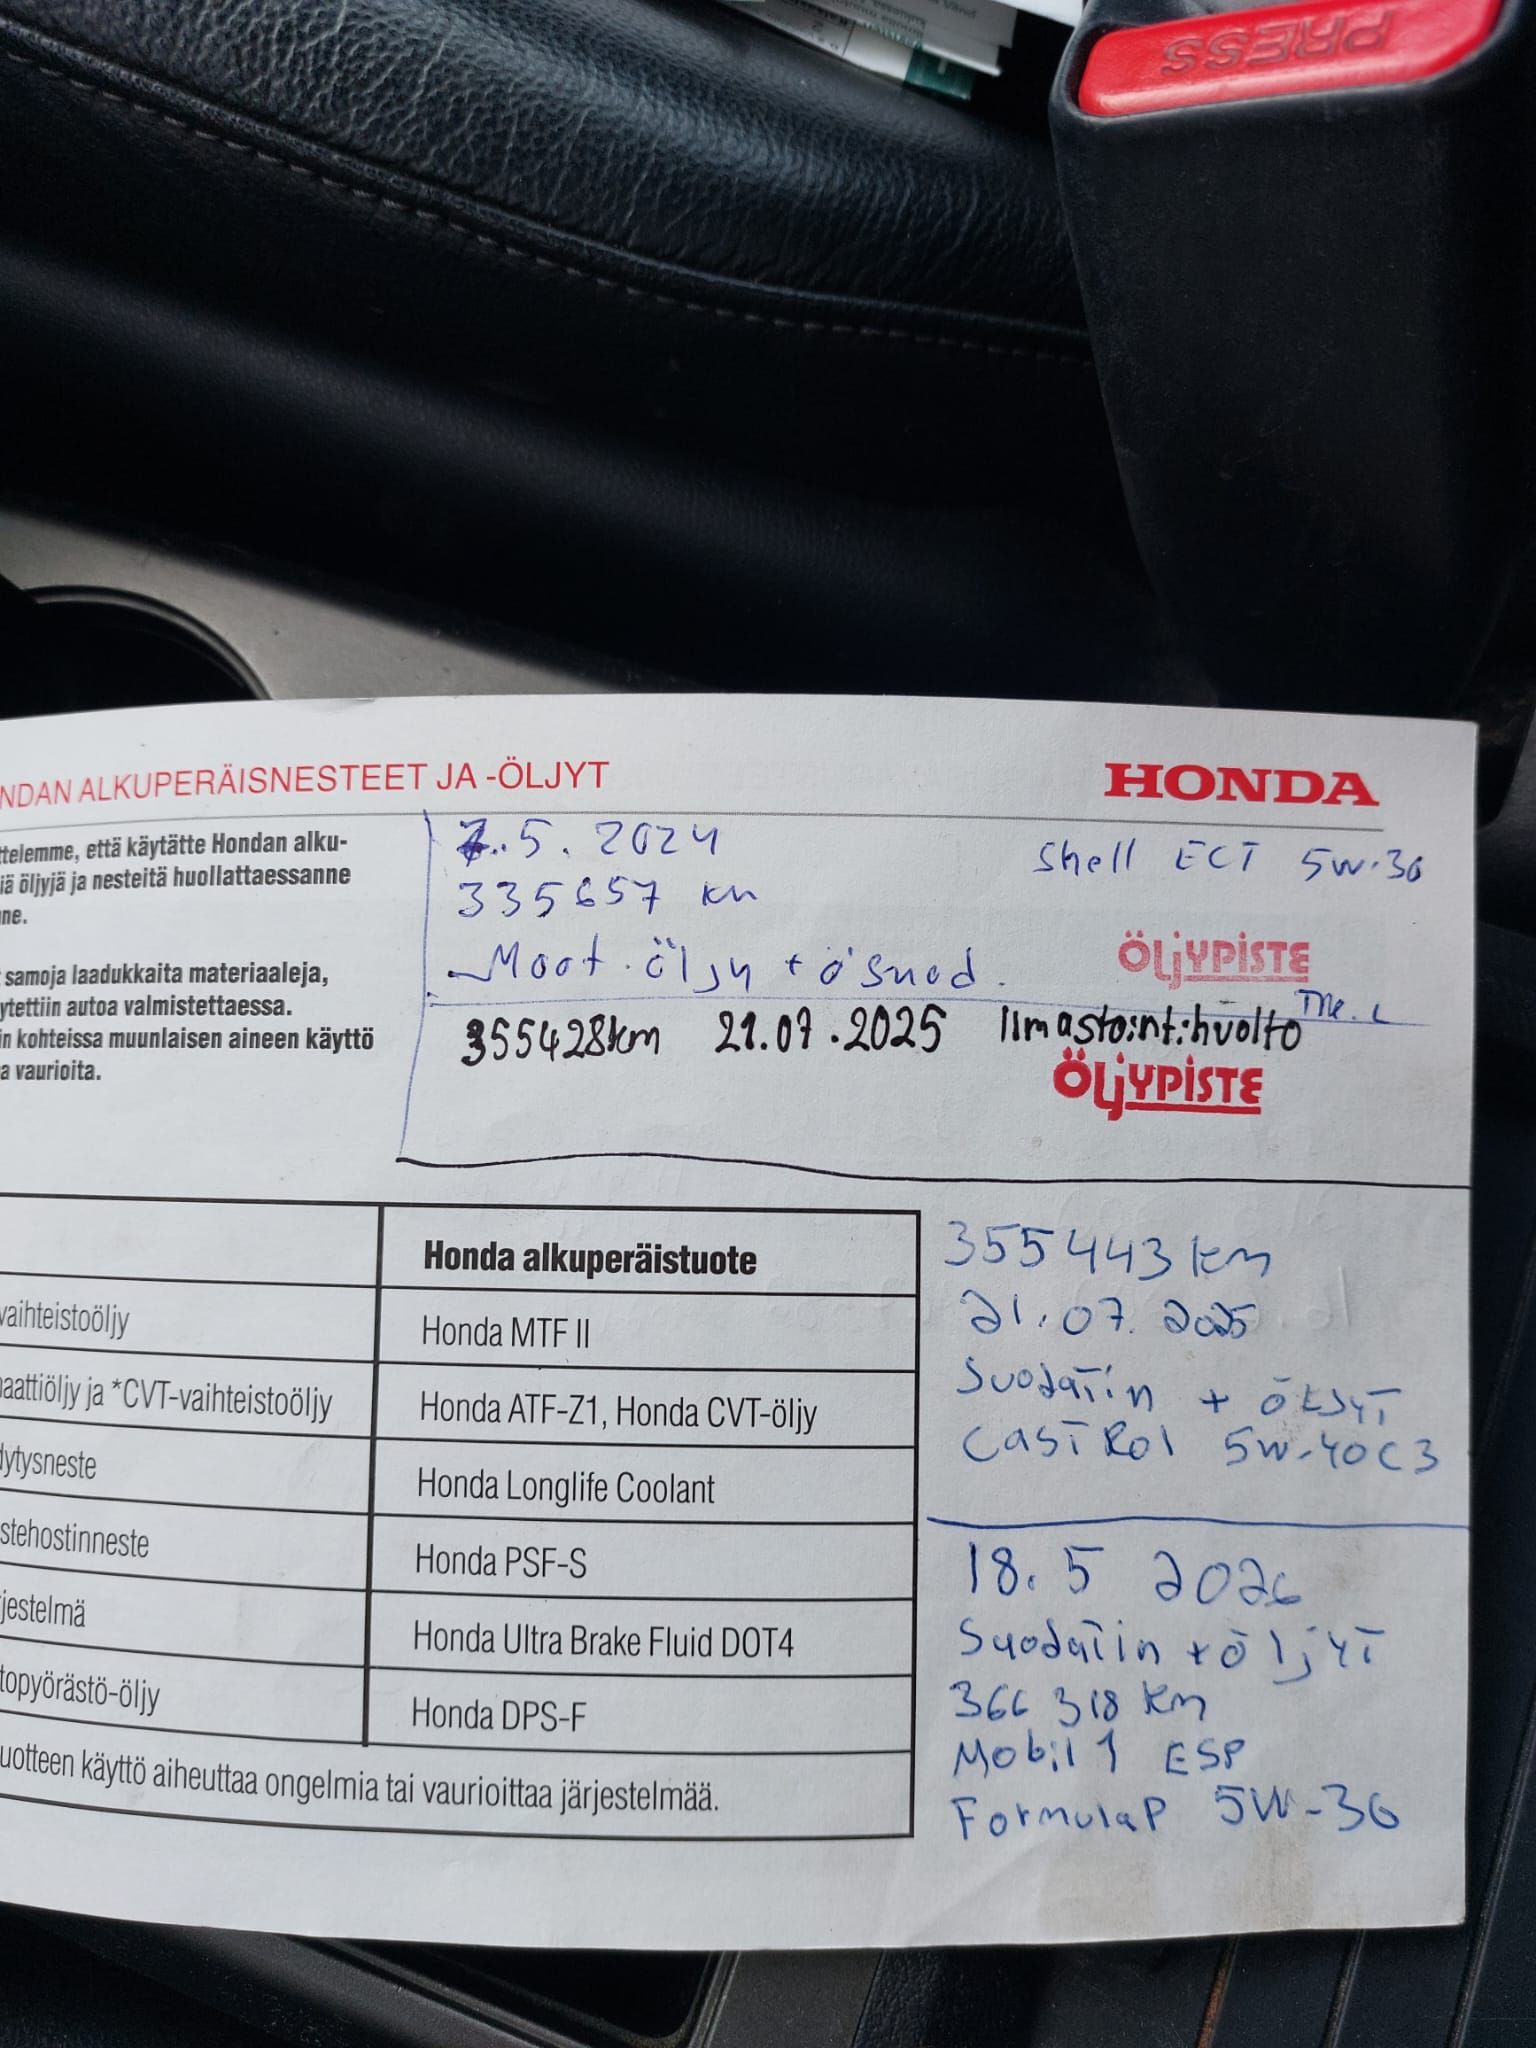 PRESS
NDAN ALKUPERÄISNESTEET JA -ÖLJYT
HONDA
ttelemme, että käytätte Hondan alku-
iä öljyjä ja nesteitä huollattaessanne
ne.
samoja laadukkaita materiaaleja,
ytettiin autoa valmistettaessa.
in kohteissa muunlaisen aineen käyttö
a vaurioita.
7.5.2024
Shell ECT 5W-30
335657 km
Moot.öljy + ö suod.
ÖLJYPISTE
355428km 21.07.2025 Ilmastointihuolto
ÖLJYPISTE
Honda alkuperäistuote
vaihteistoöljy
Honda MTF II
aattiöljy ja *CVT-vaihteistoöljy
Honda ATF-Z1, Honda CVT-öljy
dytysneste
Honda Longlife Coolant
stehostinneste
Honda PSF-S
rjestelmä
Honda Ultra Brake Fluid DOT4
topyörästö-öljy
Honda DPS-F
uotteen käyttö aiheuttaa ongelmia tai vaurioittaa järjestelmää.
355443 km
21.07.2025
Suodatin + öljyt
Castrol 5W-40 C3
18.5 2026
Suodatin + öljyt
366 318 km
Mobil 1 ESP
Formula P 5W-30